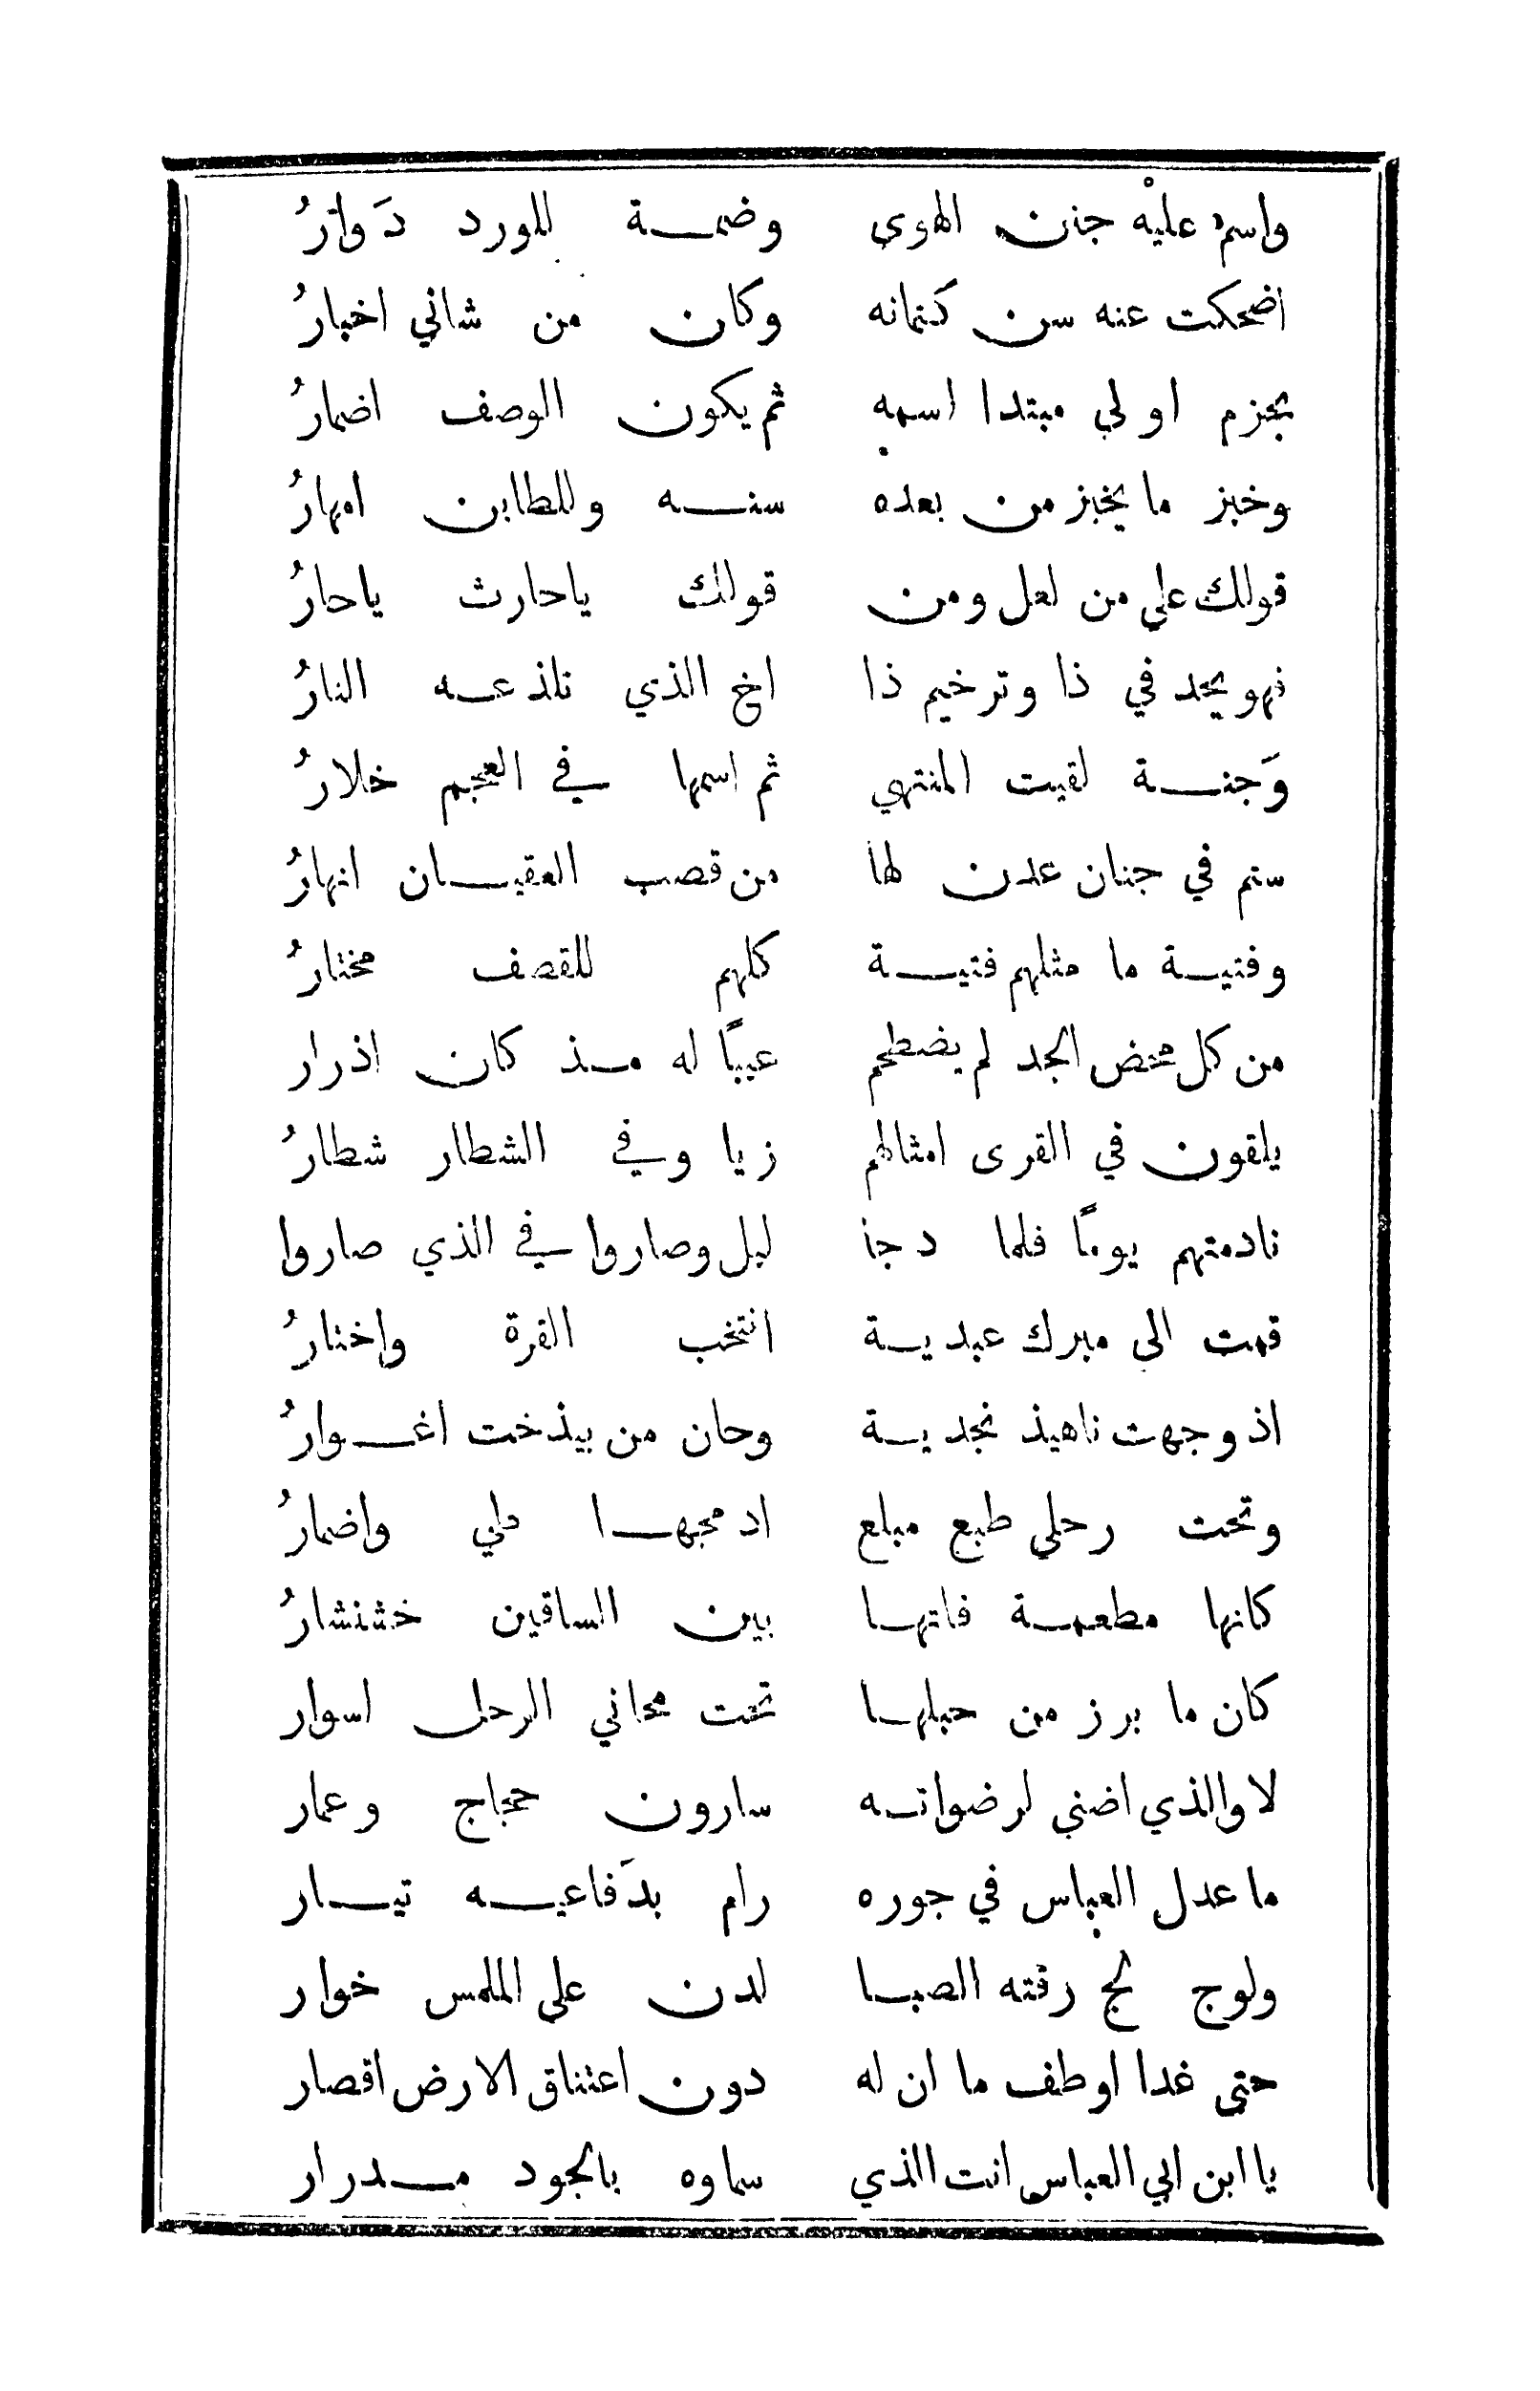 واسم عليْه جنن الهوى وضمة للورد دَوارُ
اضحكت عنه سن كتمانه وكان من شاني اخبارُ
بجزم اولي مبتدا اسمه ثم يكون الوصف اضمارُ
وخبز ما يخبز من بعده سنه وللطابن امهارُ
قولك علي من لعل ومن قولك ياحارث ياحارُ
فهو يحد في ذا وترخيم ذا اخ الذي تلذعه النارُ
وَجنة لقيت المنتهي ثم اسمها في العجم خلارُ
سنم في جنان عدن لها من قصب العقيان انهارُ
وفتية ما مثلهم فتية كلهم للقصف مختارُ
من كل محض الجد لم يضطحم عيبًا له مذ كان اذرار
يلقون في القرى امثالهم زيا وفي الشطار شطارُ
نادمتهم يومًا فلما دجا ليل وصاروا في الذي صاروا
قمت الى مبرك عبدية انتخب القرة واختارُ
اذ وجهت ناهيذ نجدية وحان من بيذخت اغوارُ
وتحت رحلي طبع مبلع ادمجها طي واضمارُ
كانها مطعمة فاتها بين الساقين خشنشارُ
كان ما برز من حبلها تحت محاني الرحل اسوار
لا والذي اضنى لرضوانه سارون حجاج وعمار
ما عدل العباس في جوره رام بدَفاعيه تيار
ولوج لج رفته الصبا لدن على الملمس خوار
حتى غدا اوطف ما ان له دون اعتناق الارض اقصار
يا ابن ابي العباس انت الذي سماوه بالجود مدرار